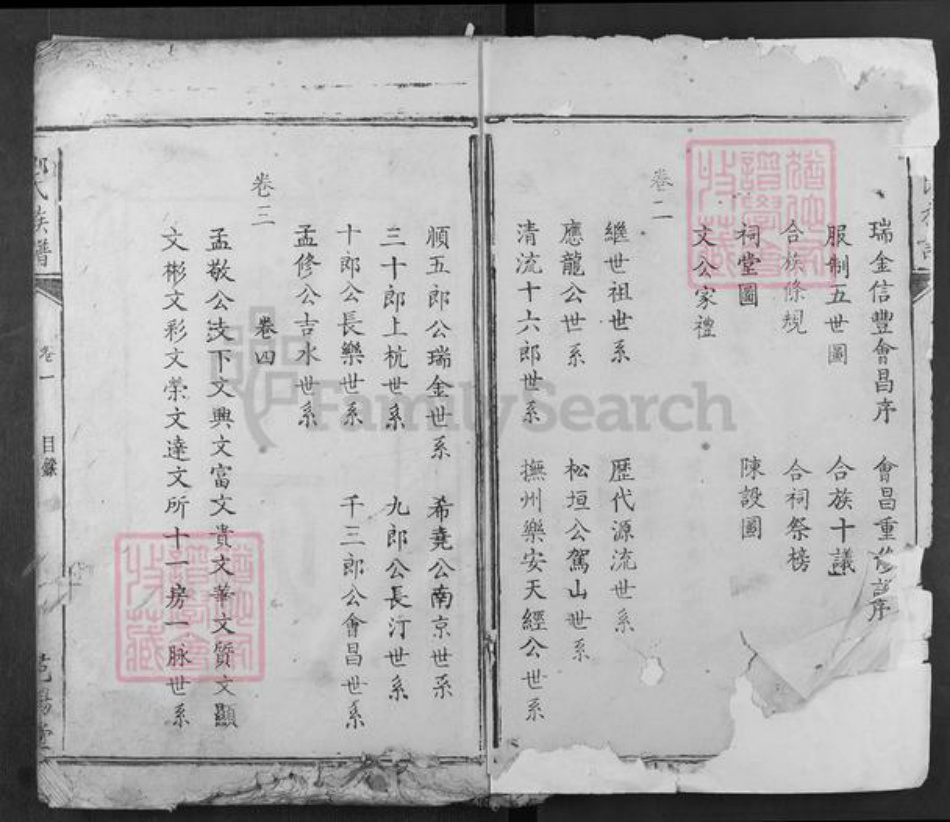 瑞金信豐會昌序 會昌重修譜序
服制五世圖 合族十議
合族條規 合祠祭榜
祠堂圖 陳設圖
文公家禮
卷二
繼世祖世系 歷代源流世系
應龍公世系 松垣公駕山世系
清流十六郎世系 撫州樂安天經公世系
順五郎公瑞金世系 希堯公南京世系
三十郎上杭世系 九郎公長汀世系
十郎公長樂世系 千三郎公會昌世系
孟修公吉水世系
卷三 卷四
孟敬公支下文興文富文貴文華文質文顯
文彬文彩文榮文達文所十一房一脉世系
氏族譜
卷一
目錄
FamilySearch